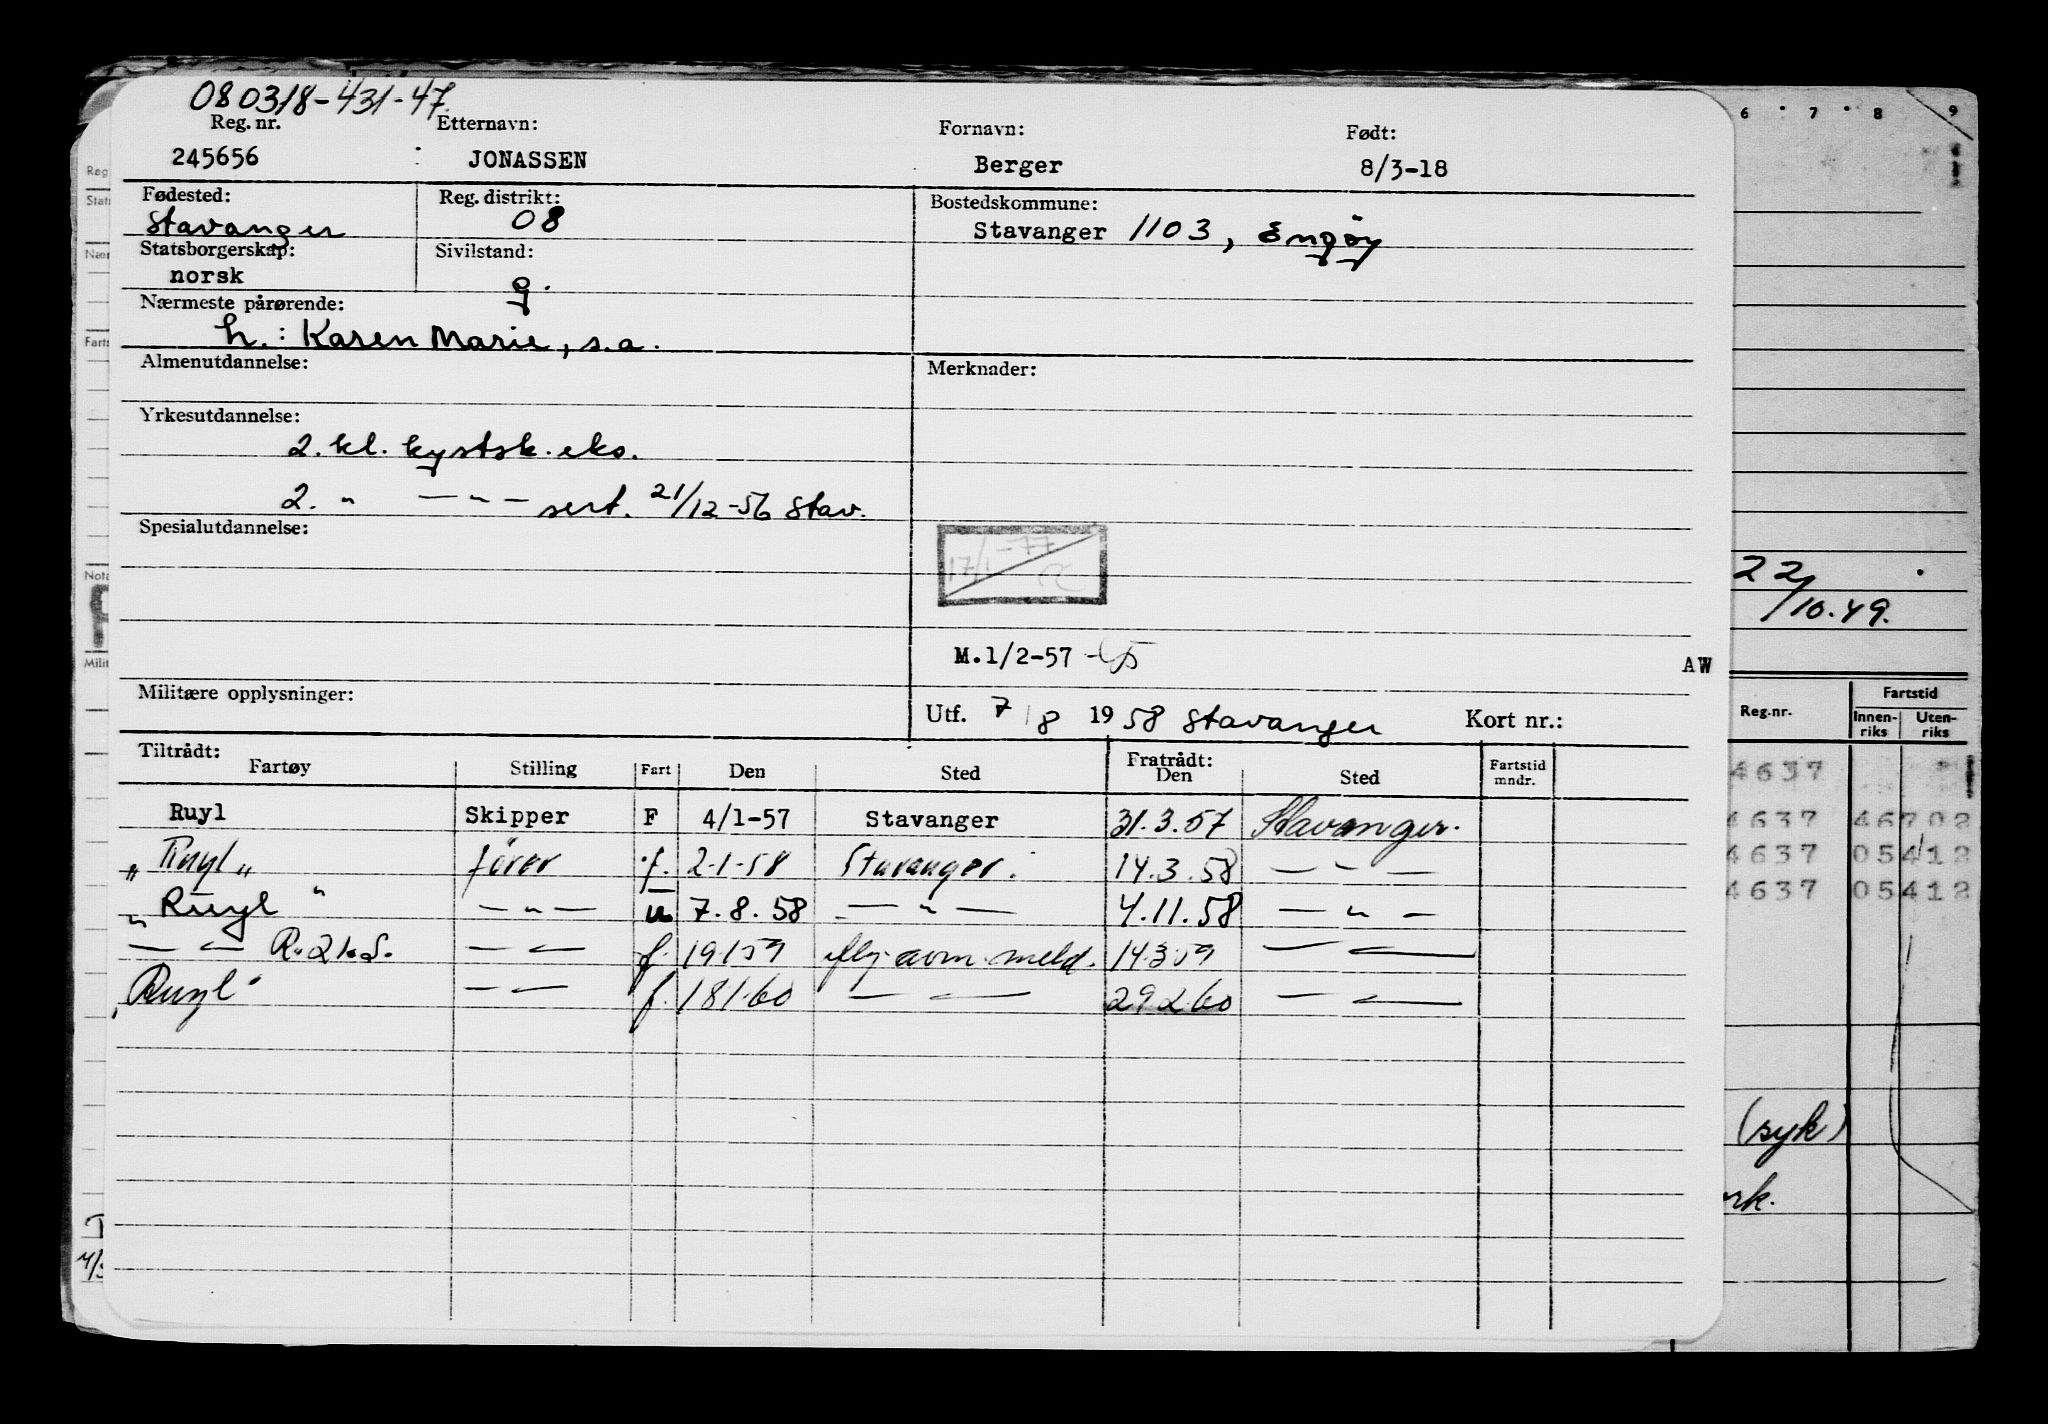 080318-431-47.
Reg. nr. Etternavn: Fornavn: Født:
245656 JONASSEN Berger 8/3-18
Fødested: Reg. distrikt: Bostedskommune:
Stavanger 08 Stavanger 1103, Engøy
Statsborgerskap: Sivilstand:
norsk g.
Nærmeste pårørende:
h.: Karen Marie, s.a.
Almenutdannelse: Merknader:
Yrkesutdannelse:
2. kl. kystsk. eks.
2. " — " — sert. 21/12-56 Stav.
Spesialutdannelse:
17/1-77
M.1/2-57 AW
Militære opplysninger:
Utf. 7/8 1958 Stavanger Kort nr.:
Tiltrådt: Fratrådt:
Fartøy Stilling Fart Den Sted Den Sted Fartstid mndr.
Ruyl Skipper F 4/1-57 Stavanger 31.3.57 Stavanger.
"Ruyl" fører f. 2-1-58 Stavanger. 14.3.58 — " —
"Ruyl" — " — u 7.8.58 — " — 4.11.58 — " —
— " — R.21.S. — " — f. 19159 meld. 14.3.59 — " —
"Ruyl" — " — f. 181.60 — " — 29260 — " —
6 7 8 9
22/10.49.
Reg.nr. Fartstid
Innen-riks Uten-riks
4637
4637 46702
4637 05412
4637 05412
(syk)